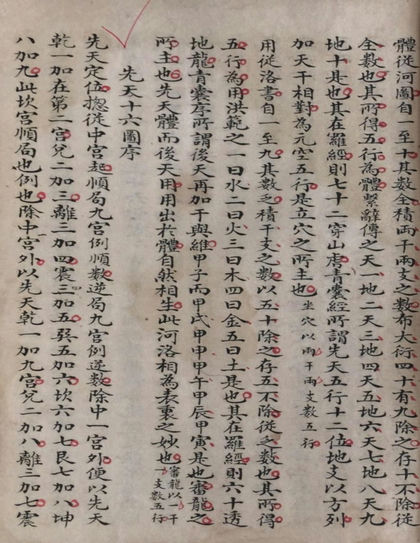 體從河圖自一至十其數全積兩干兩支之數布大衍四十有九除之存十不除從
全數也其所得五行為體繫辭傳之天一地二天三地四天五地六天七地八天九
地十是也其在羅經則七十二穿山虎青囊經所謂先天五行十二位地支以方列
加天干相對為元空五行是立穴之所主也坐穴以兩干兩支數五行
用從洛書自一至九其數之積干支之數以五十除之存五不除從之數也其所得
五行為用洪範之一曰水二曰火三曰木四曰金五曰土是也其在羅經則六十透
地龍青囊序所謂後天再加干與維甲子而甲戌甲申甲午甲辰甲寅是也審龍之
所主也先天體而後天用用出於體自然相生此河洛相為表裏之妙也審龍以一干一支數五行
先天十六圖序
先天定位揔從中宮起順局九宮例順數逆局九宮例逆數除中一宮外便以先天
乾一加在第二宮兌二加三離三加四震三加五巽五加六坎六加七艮七加八坤
八加九此坎宮順局也例也除中宮外以先天乾一加九宮兌二加八離三加七震